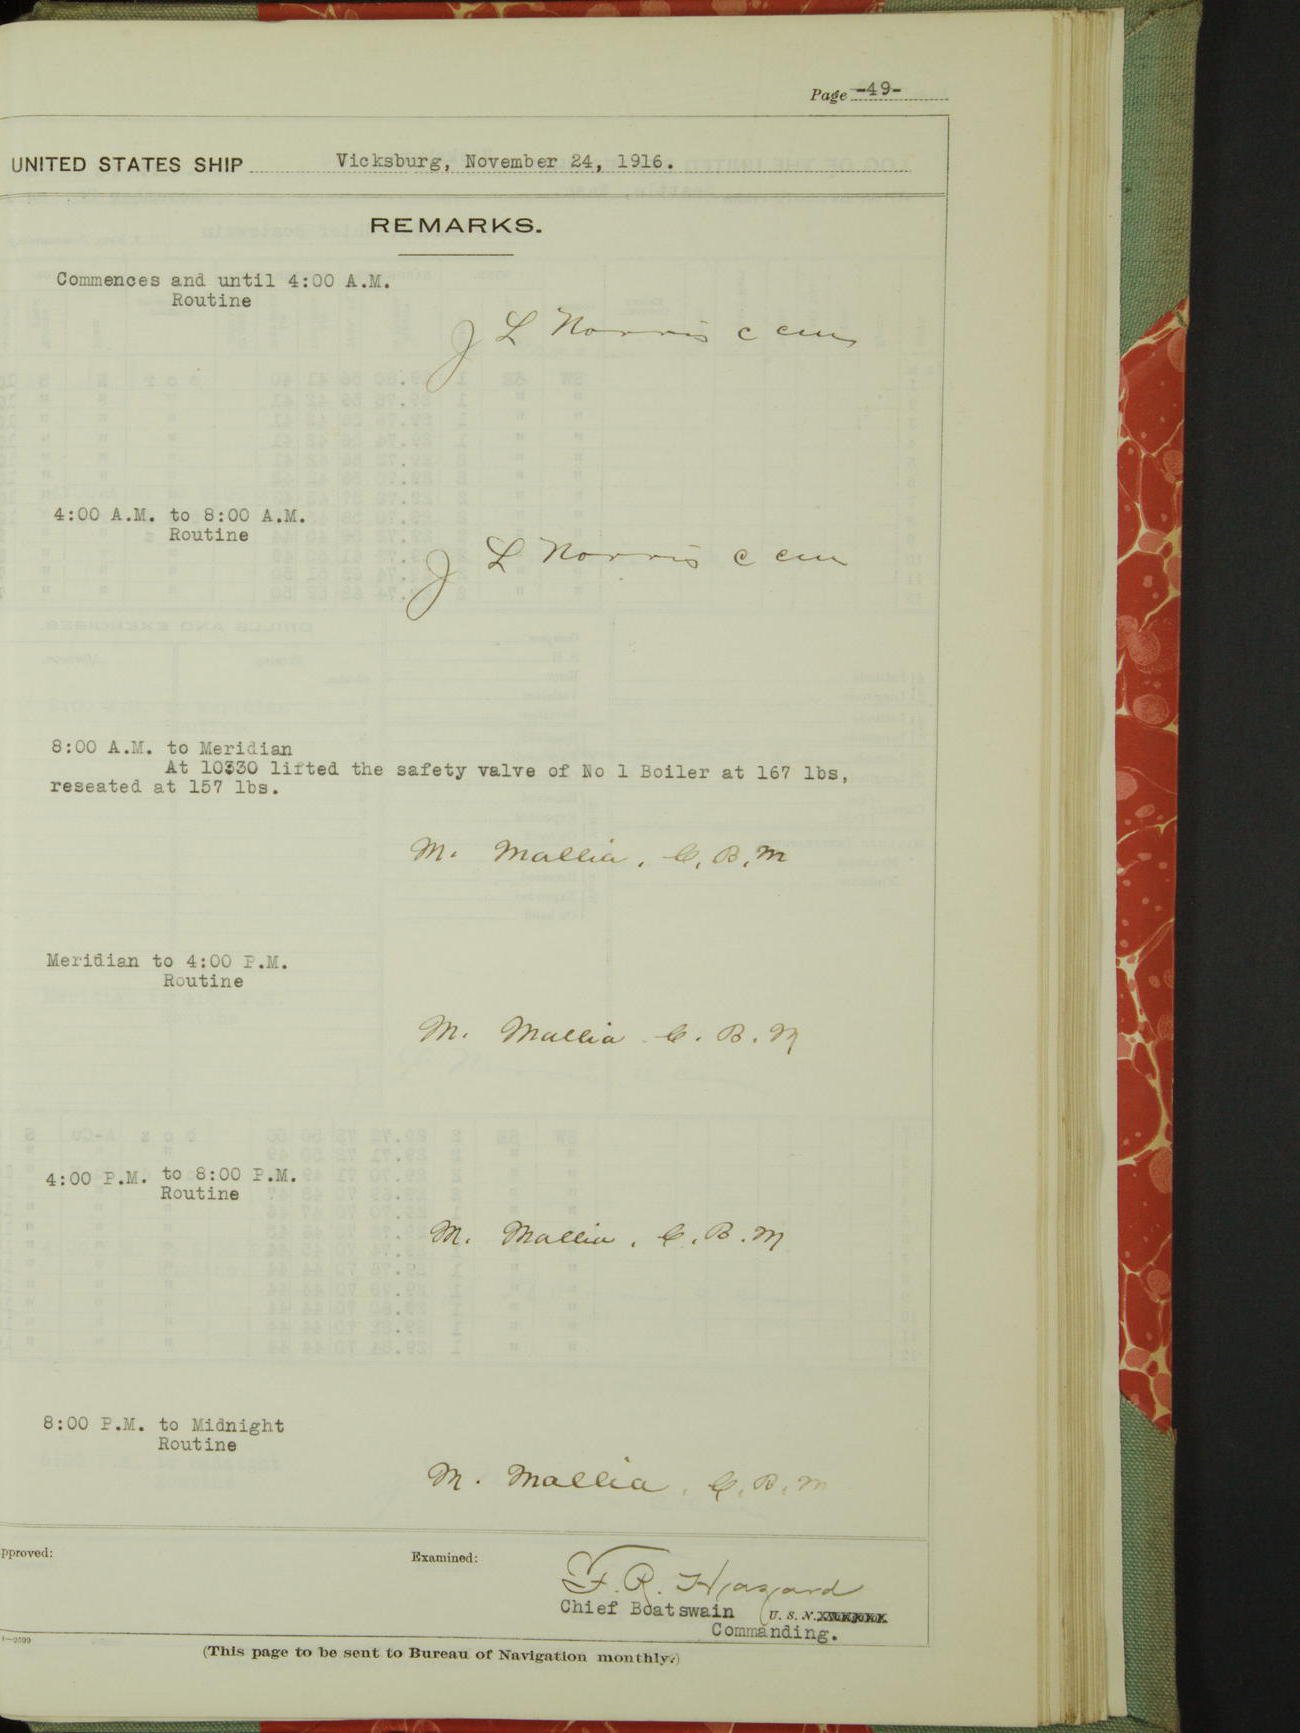 Page -49-
UNITED STATES SHIP Vicksburg, November 24, 1916.
REMARKS.
Commences and until 4:00 A.M.
Routine
J L Norris C CM
4:00 A.M. to 8:00 A.M.
Routine
J L Norris C CM
8:00 A.M. to Meridian
At 10330 lifted the safety valve of No 1 Boiler at 167 lbs,
reseated at 157 lbs.
M. Mallia, C. B. M
Meridian to 4:00 P.M.
Routine
M. Mallia C. B. M
4:00 P.M. to 8:00 P.M.
Routine
M. Mallia, C. B. M
8:00 P.M. to Midnight
Routine
M. Mallia, C. B. M
pproved:
Examined:
F. R. Hazard
Chief Boatswain U. S. N.
Commanding.
(This page to be sent to Bureau of Navigation monthly.)